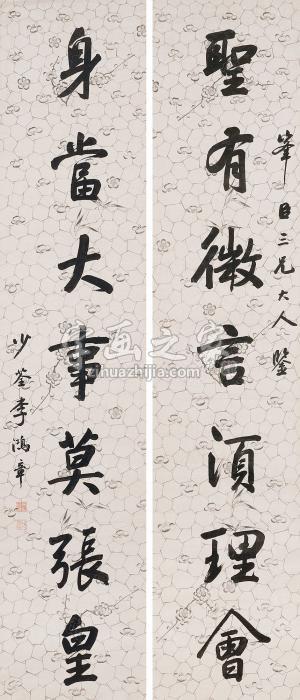 聖有微言須理會
筆臣三兄大人鑒
身當大事莫張皇
少荃李鴻章
书画之家
zihuazhijia.com